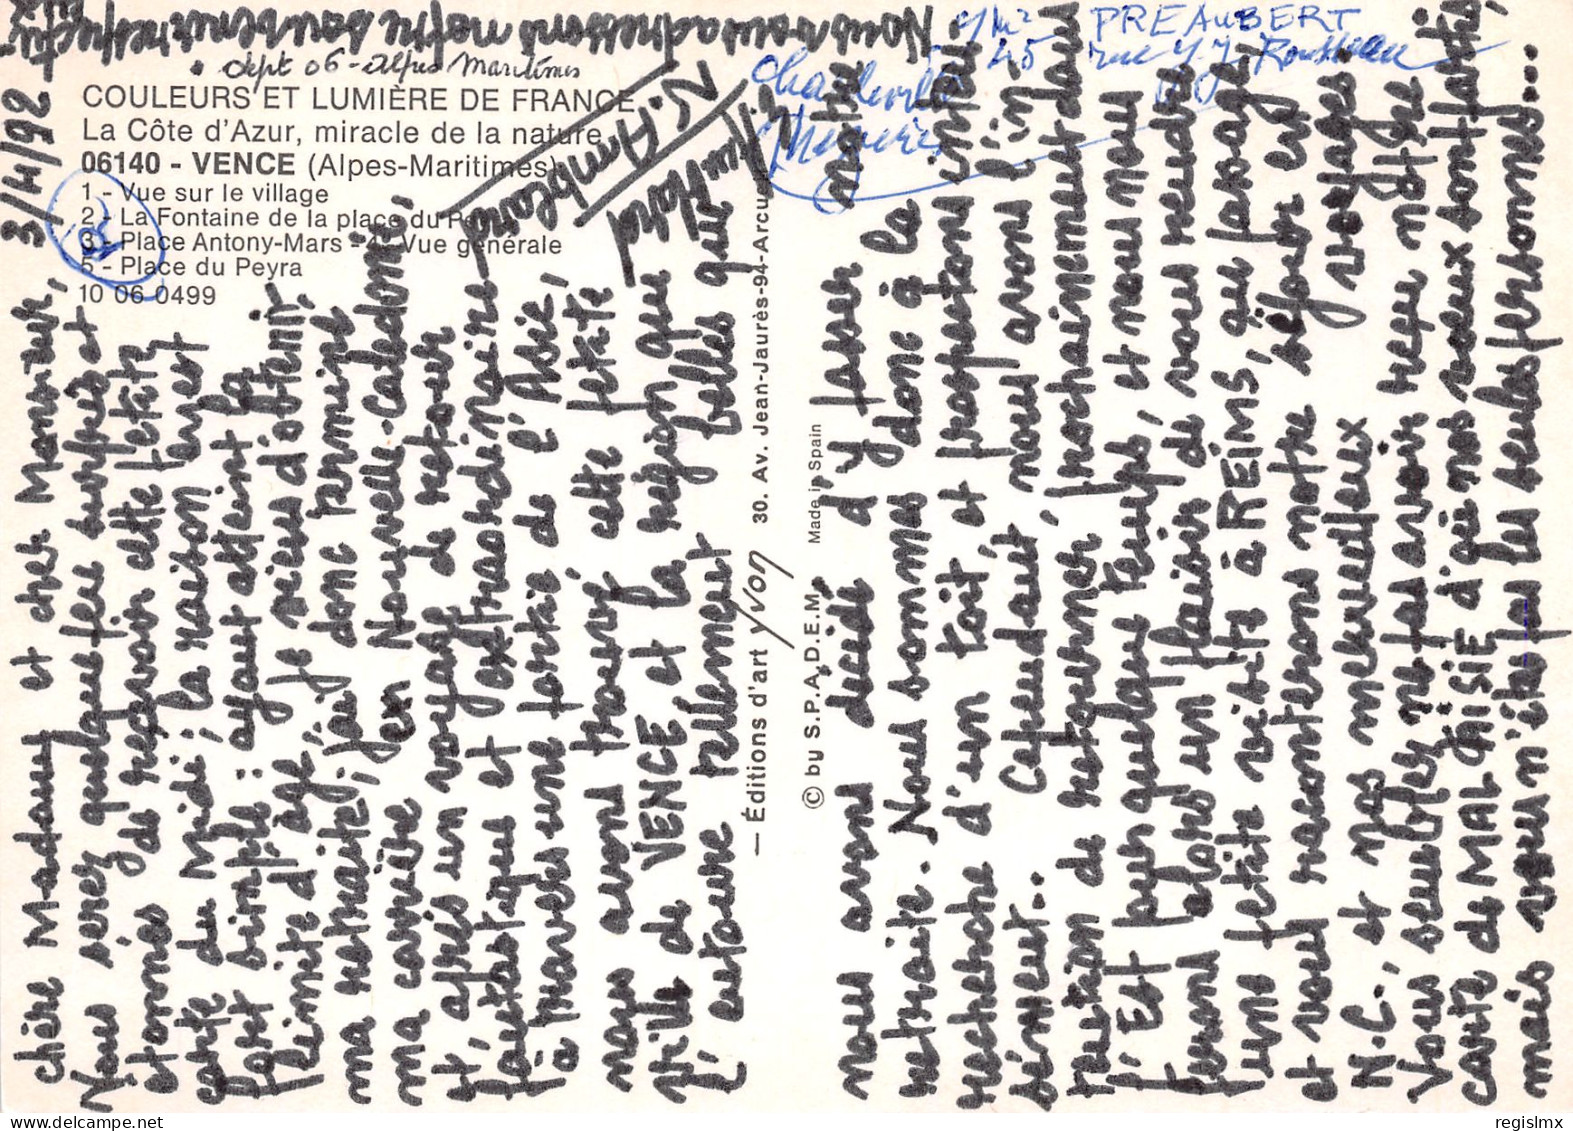 3/4/92
Chère Madame et cher Monsieur,
Vous serez quelque peu surpris et
étonnés de recevoir cette petite
carte du Midi ; la raison en est
fort simple : ayant atteint la
"limite d'âge", je viens d'obtenir
ma retraite ; j'ai donc terminé
ma carrière en Nouvelle-Calédonie,
et, après un voyage de retour
fantastique et extraordinaire
à travers une partie de l'Asie,
nous avons trouvé cette petite
ville de VENCE et la région qui
l'entoure tellement belles que
nous avons décidé d'y passer notre
retraite. Nous sommes donc à la
recherche d'un toit, et prospectons intensément.
sément. Cependant, nous avons l'intention
de retourner prochainement dans
l'Est pour quelque temps, et nous nous
ferons alors un plaisir de vous rendre
une petite visite à REIMS, au passage
et vous raconterons notre séjour en
N.C. et nos merveilleux voyages.
Vous semblez ne pas avoir reçu notre
carte de MALAISIE d'où nos vœux sont partis,
mais vous n'êtes pas les seules personnes...
Nous vous adressons notre souvenir respectueux
COULEURS ET LUMIÈRE DE FRANCE
La Côte d'Azur, miracle de la nature
06140 - VENCE (Alpes-Maritimes)
1 - Vue sur le village
2 - La Fontaine de la place du Peyra
3 - Place Antony-Mars - 4 - Vue générale
5 - Place du Peyra
10 06 0499
dept 06 - Alpes Maritimes
— Éditions d'art yvon 30. Av. Jean-Jaurès-94-Arcueil
© by S.P.A.D.E.M. Made in Spain
PREAUBERT
45 rue J. J. Rousseau
Charleville
Mézières
regislmx